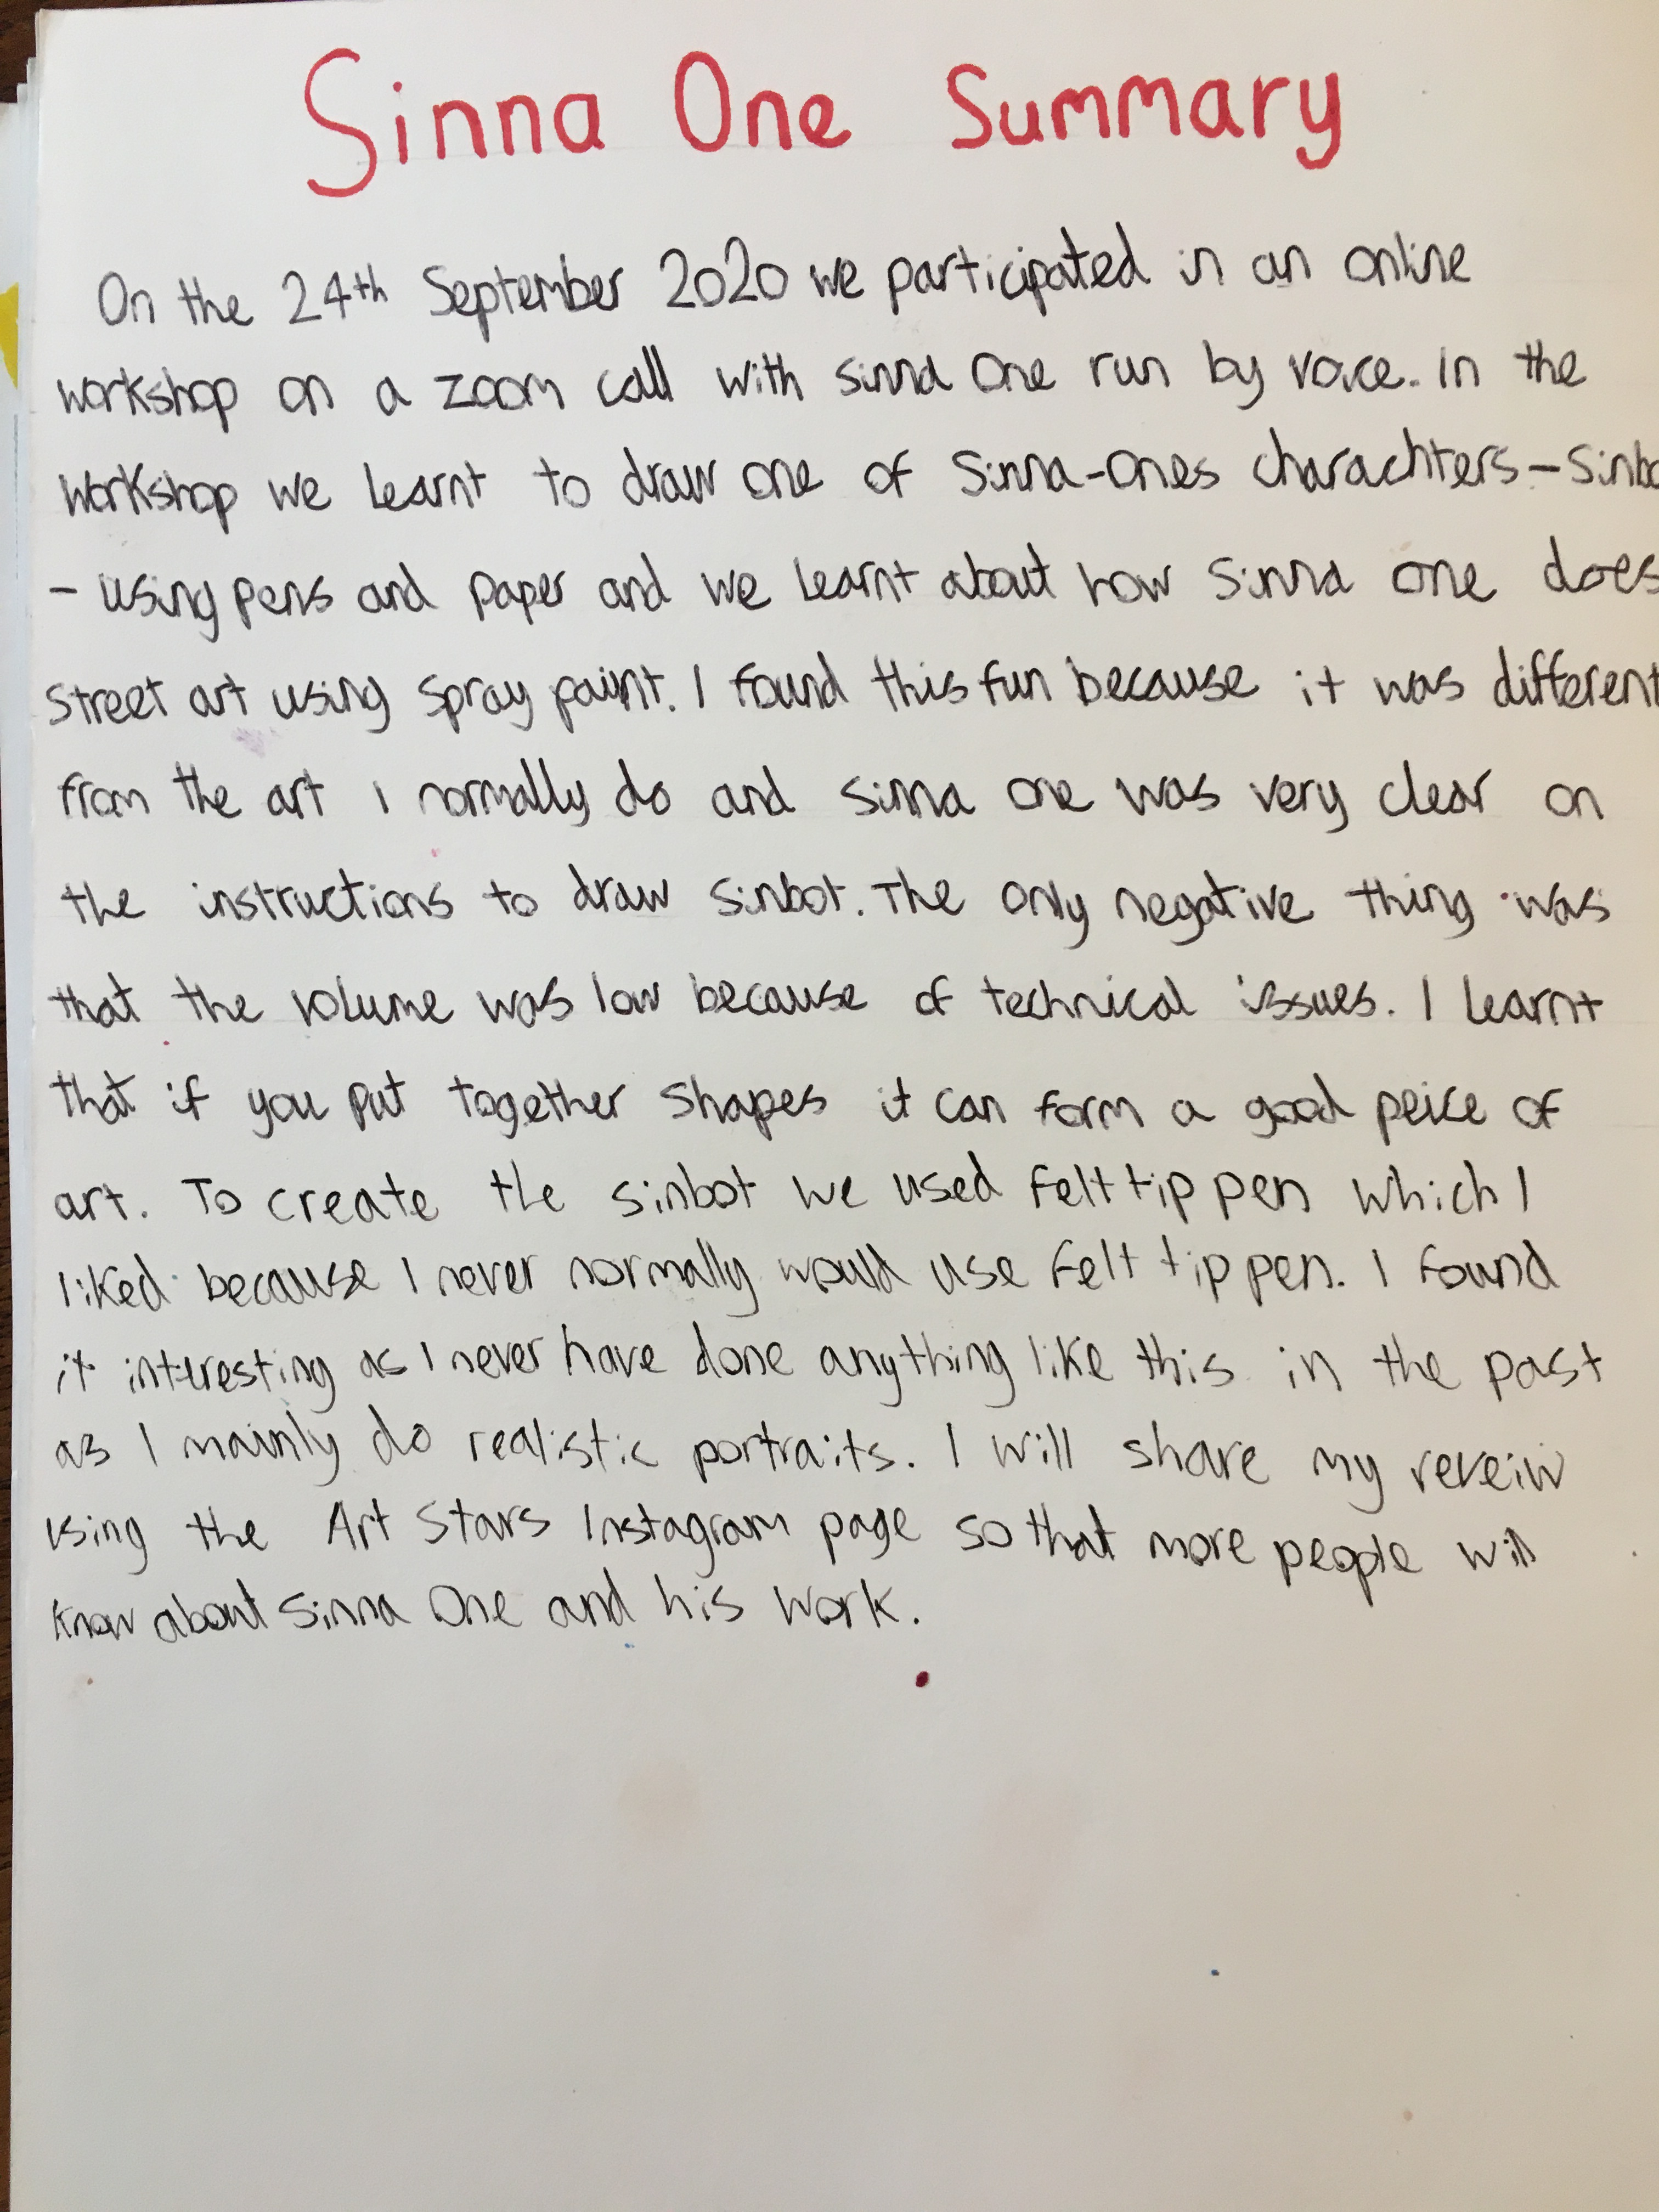 Sinna One Summary
On the 24th September 2020 we participated in an online
workshop on a zoom call with sinna One run by voice. In the
workshop we learnt to draw one of Sinna-Ones charachters - Sinbo
- using pens and paper and we learnt about how Sinna one does
street art using spray paint. I found this fun because it was different
from the art I normally do and sinna one was very clear on
the instructions to draw sinbot. The only negative thing was
that the volume was low because of technical issues. I learnt
that if you put together shapes it can form a good peice of
art. To create the sinbot we used felt tip pen which I
liked because I never normally would use felt tip pen. I found
it interesting as I never have done anything like this in the past
as I mainly do realistic portraits. I will share my reveiw
using the Art Stars Instagram page so that more people will
know about Sinna One and his work.